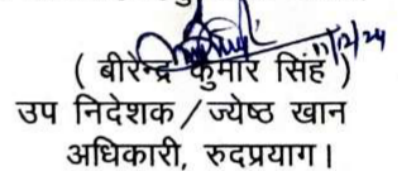 11/12/24
( बीरेन्द्र कुमार सिंह )
उप निदेशक / ज्येष्ठ खान
अधिकारी, रुदप्रयाग।